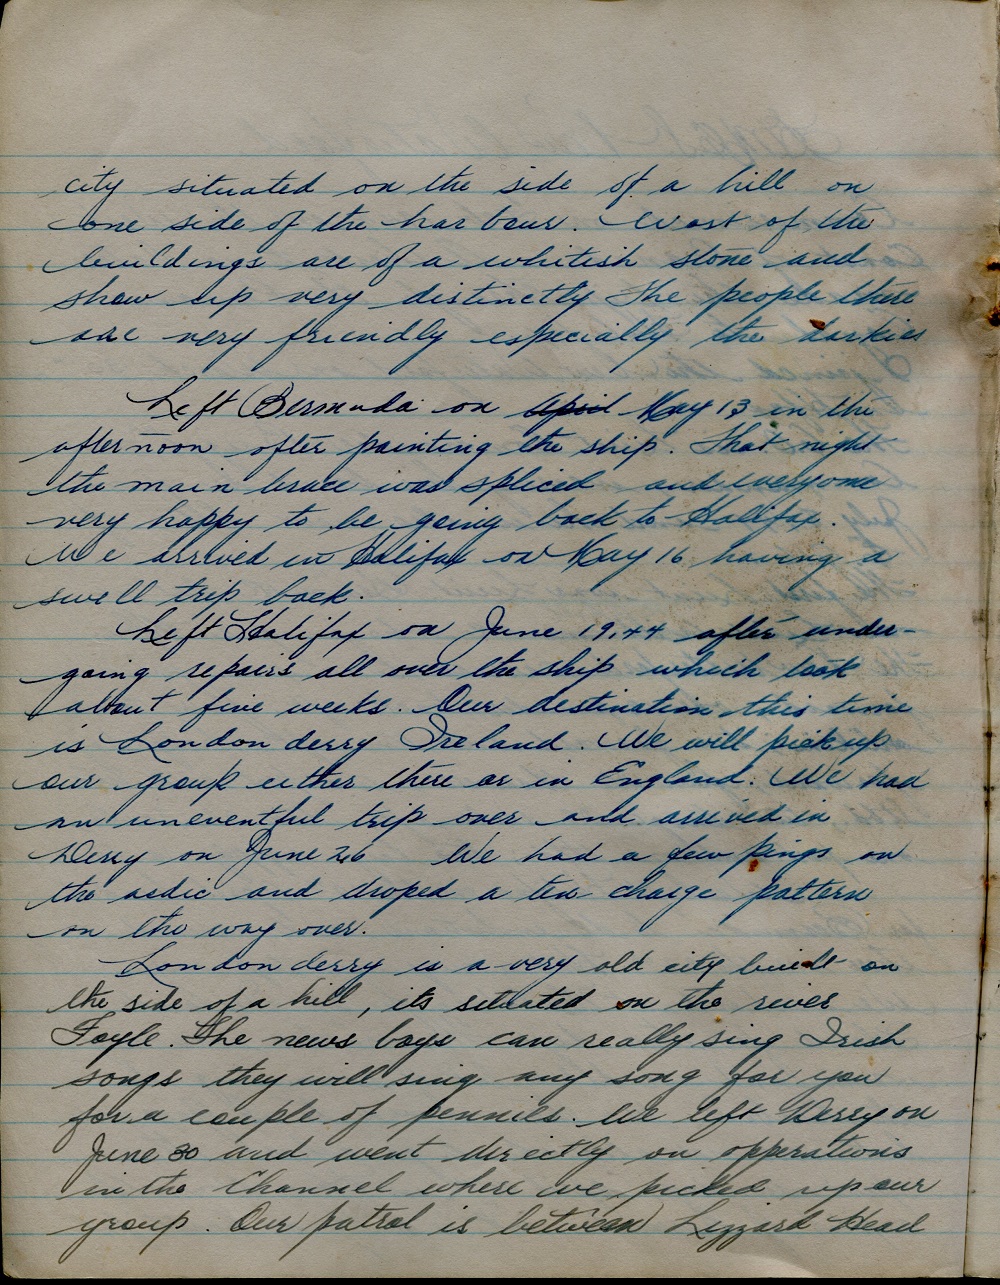 city situated on the side of a hill on
one side of the harbour. Most of the
buildings are of a whitish stone and
show up very distinctly The people there
are very friendly especially the darkies
Left Bermuda on April May 13 in the
afternoon after painting the ship. That night
the main brace was spliced and everyone
very happy to be going back to Halifax.
We arrived in Halifax on May 16 having a
swell trip back.
Left Halifax on June 19, 44 after under-
going repairs all over the ship which took
about five weeks. Our destination this time
is Londonderry Ireland. We will pick up
our group either there or in England. We had
an uneventful trip over and arrived in
Derry on June 26 We had a few pings on
the asdic and droped a ten charge pattern
on the way over.
Londonderry is a very old city built on
the side of a hill, its situated on the river
Foyle. The news boys can really sing Irish
songs they will sing any song for you
for a couple of pennies. We left Derry on
June 30 and went directly on opperations
in the Channel where we picked up our
group. Our patrol is between Lizzard Head